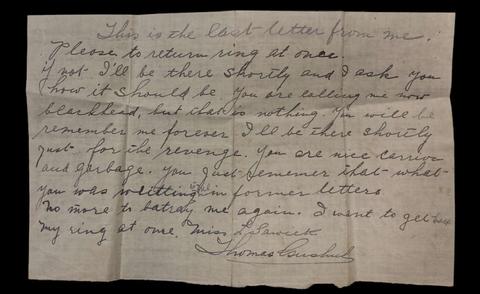 This is the last letter from me.
Please to return ring at once.
if not I'll be there shortly and I ask you
how it should be. You are calling me now
blackhead, but that is nothing. You will be
remember me forever I'll be there shortly
just for the revenge. You are nice carrion
and garbage. You just rememer that what
you was writting in former letters
No more to batray me again. I want to get back
my ring at once. Miss L Sawick
Thomas